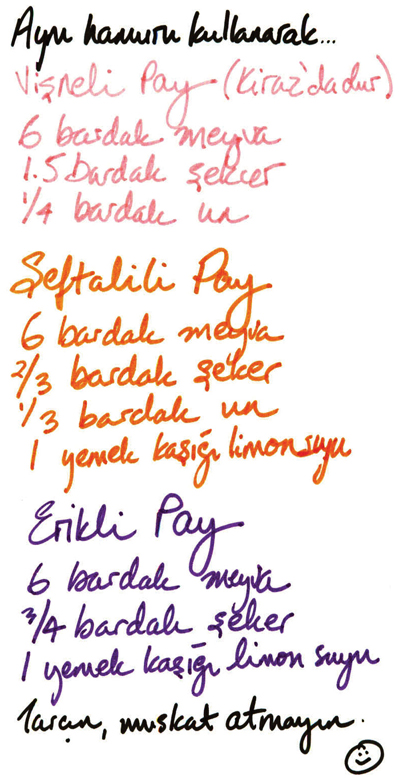 Aynı hamuru kullanarak...
Vişneli Pay (Kiraz'da dur)
6 bardak meyva
1.5 bardak şeker
1/4 bardak un
Şeftalili Pay
6 bardak meyva
2/3 bardak şeker
1/3 bardak un
1 yemek kaşığı limon suyu
Erikli Pay
6 bardak meyva
3/4 bardak şeker
1 yemek kaşığı limon suyu
Tarçın, muskat atmayın.